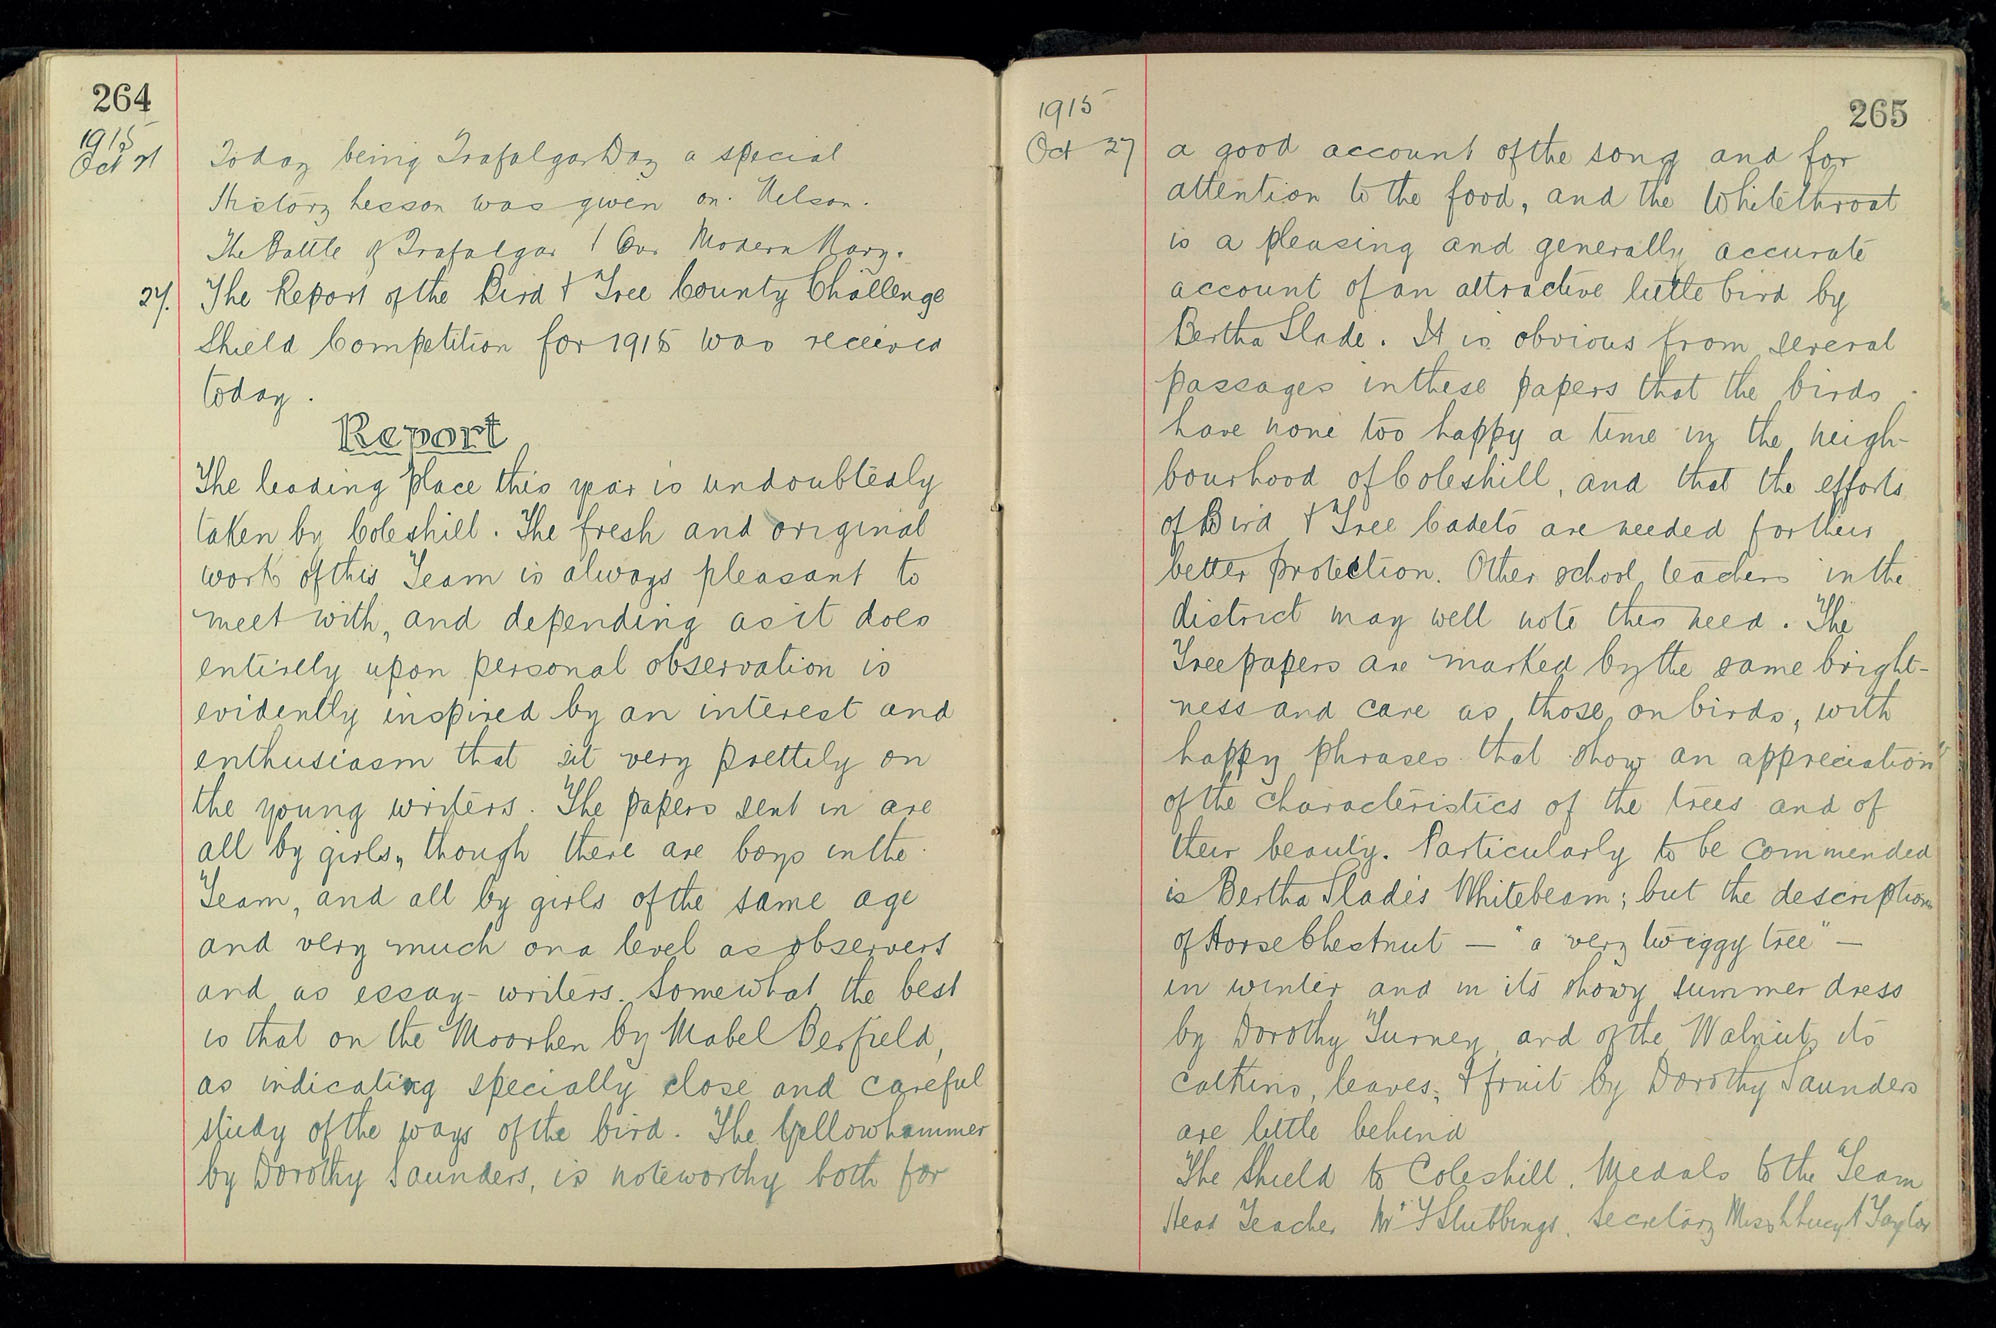 264
1915
Oct 21 Today being Trafalgar Day a special
History Lesson was given on. Nelson.
The Battle of Trafalgar & Our Modern Navy.
27. The Report of the Bird & Tree County Challenge
Shield Competition for 1915 was received
today.
Report
The leading place this year is undoubtedly
taken by Coleshill. The fresh and original
work of this Team is always pleasant to
meet with, and depending as it does
entirely upon personal observation is
evidently inspired by an interest and
enthusiasm that sit very prettily on
the young writers. The papers sent in are
all by girls, though there are boys in the
Team, and all by girls of the same age
and very much on a level as observers
and as essay-writers. Somewhat the best
is that on the Moorhen by Mabel Berfield,
as indicating specially close and careful
study of the ways of the bird. The Yellowhammer
by Dorothy Saunders, is noteworthy both for
265
1915
Oct 27 a good account of the song and for
attention to the food, and the Whitethroat
is a pleasing and generally accurate
account of an attractive little bird by
Bertha Slade. It is obvious from several
passages in these papers that the birds
have none too happy a time in the neigh-
bourhood of Coleshill, and that the efforts
of Bird & Tree Cadets are needed for their
better protection. Other school teachers in the
district may well note this need. The
Tree papers are marked by the same bright-
ness and care as those on birds, with
happy phrases that show an appreciation
of the characteristics of the trees and of
their beauty. Particularly to be commended
is Bertha Slade's Whitebeam; but the descriptions
of Horse Chestnut — "a very twiggy tree" —
in winter and in its showy summer dress
by Dorothy Turney and of the Walnut, its
catkins, leaves, & fruit by Dorothy Saunders
are little behind
The Shield to Coleshill. Medals to the Team
Head Teacher Mr F Stubbings. Secretary Miss Lucy A Taylor